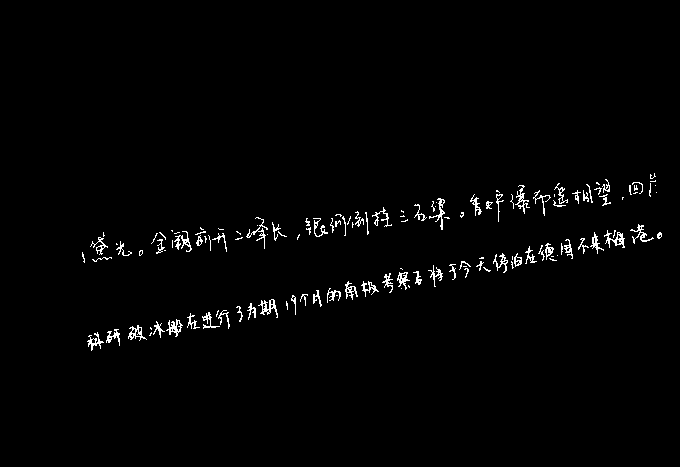 黛光。金阙前开二峰长，银河倒挂三石梁。香炉瀑布遥相望，回
科研破冰船在进行了为期19个月的南极考察后将于今天停泊在德国不来梅港。